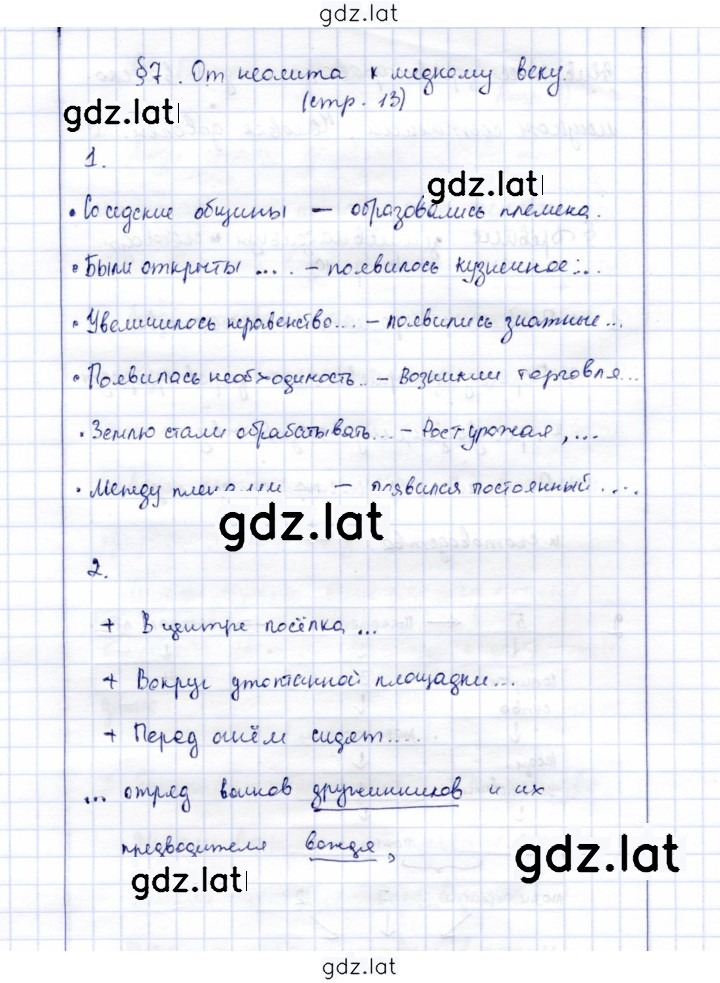 gdz.lat
§7. От неолита к медному веку.
(стр. 13)
gdz.lat
1.
gdz.lat
• Соседские общины — образовались племена.
• Были открыты .... - появилось кузнечное...
• Увеличилось неравенство... - появились знатные...
• Появилась необходимость.. - Возникли торговля...
• Землю стали обрабатывать... - Рост урожая, ...
• Между племенами — появился постоянный ....
gdz.lat
2.
+ В центре посёлка ...
+ Вокруг утоптанной площадки...
+ Перед огнём сидят....
... отряд воинов дружинников и их
предводителя вождя,
gdz.lat
gdz.lat
gdz.lat